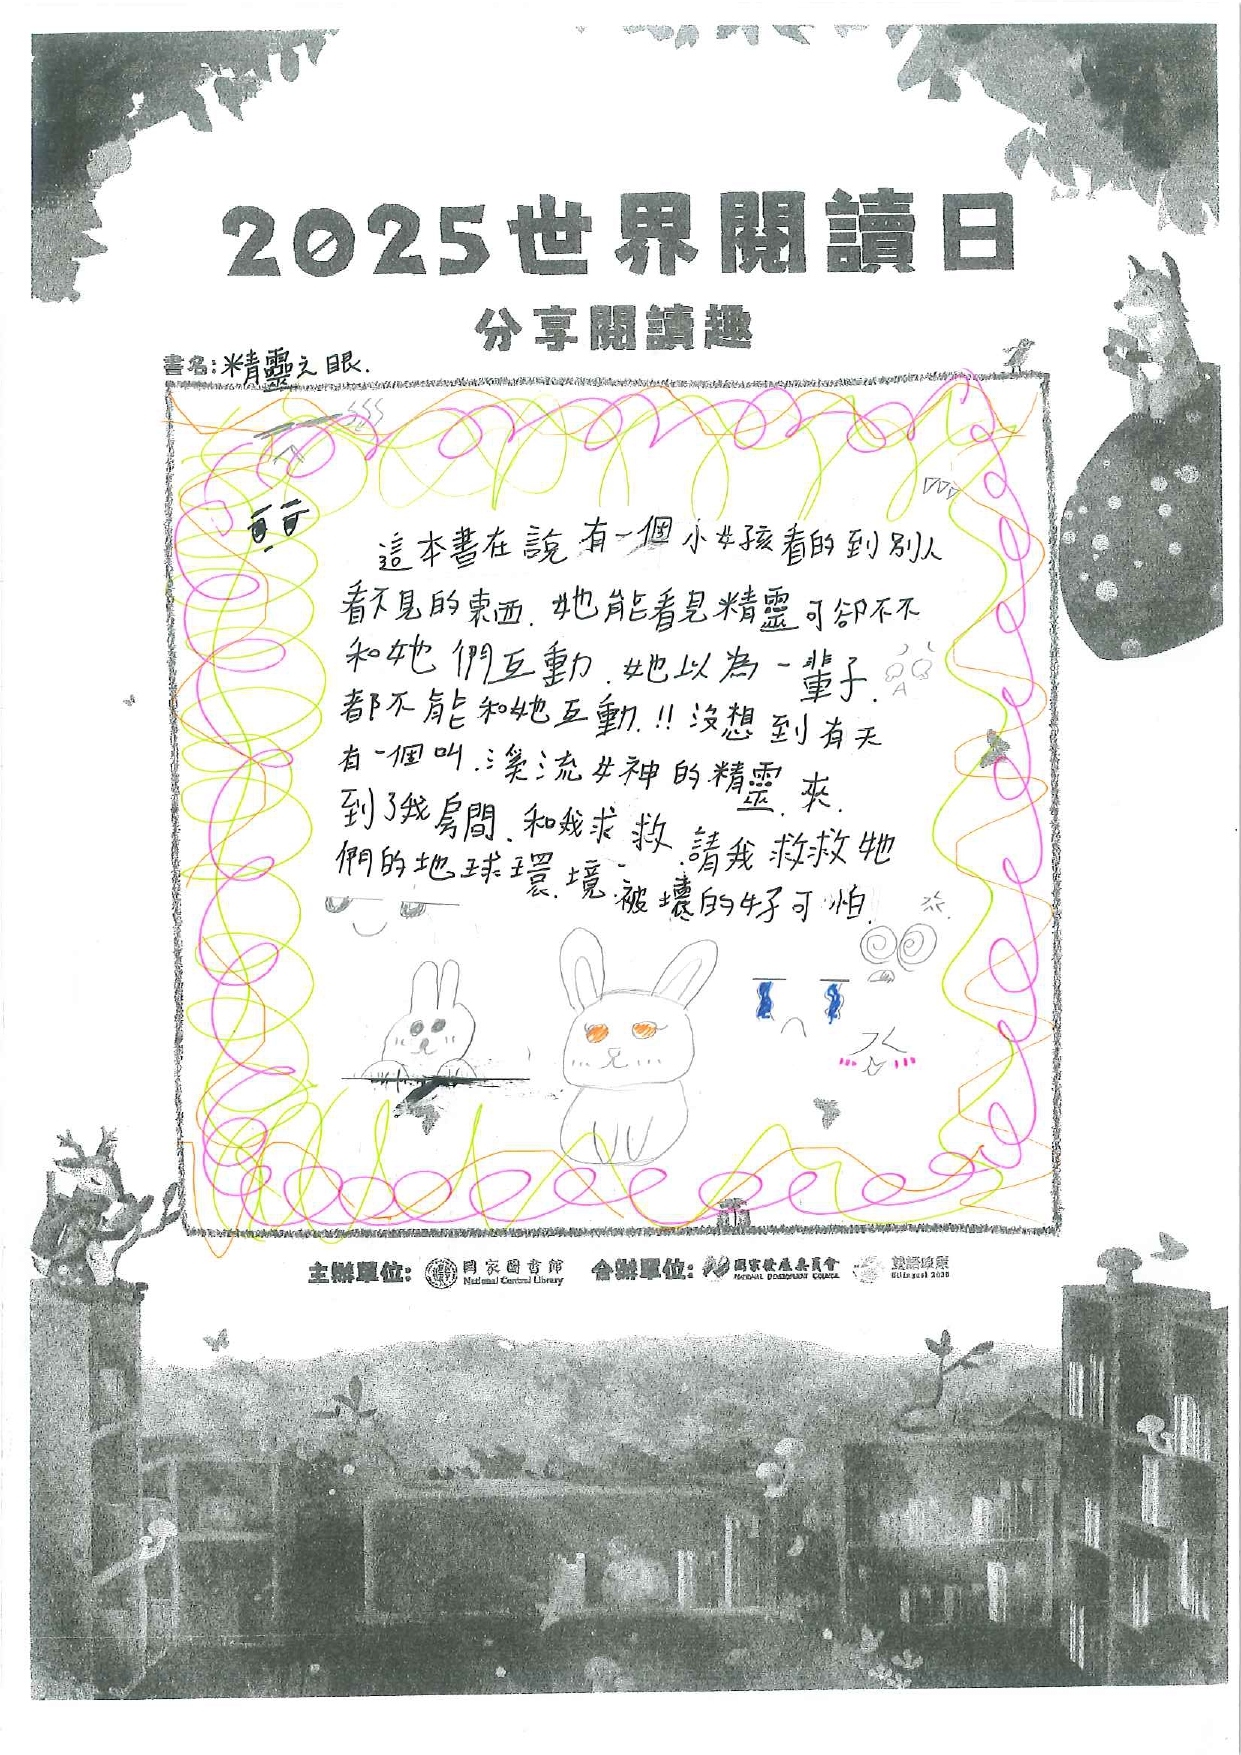 2025世界閱讀日
分享閱讀趣
書名:精靈之眼.
這本書在說有一個小女孩看的到別人
看不見的東西.她能看見精靈可卻不不
和她們互動.她以為一輩子.
都不能和她互動.!!沒想到有天
有一個叫.溪流女神的精靈.來.
到了我房間.和我求救.請我救救牠
們的地球環.境.被壞的好可怕.
主辦單位: 國家圖書館 National Central Library 合辦單位: 國家發展委員會 NATIONAL DEVELOPMENT COUNCIL 雙語政策 Bilingual 2030